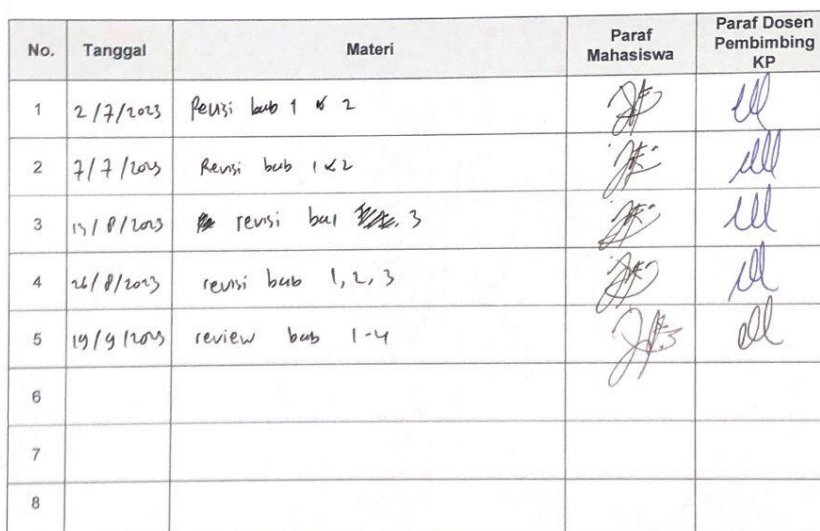 No. Tanggal Materi Paraf Mahasiswa Paraf Dosen Pembimbing KP
1 2/7/2023 Revisi bab 1 & 2
2 7/7/2023 Revisi bab 1 & 2
3 /8/2023 revisi bab 3
4 26/8/2023 revisi bab 1, 2, 3
5 19/9/2023 review bab 1-4
6
7
8